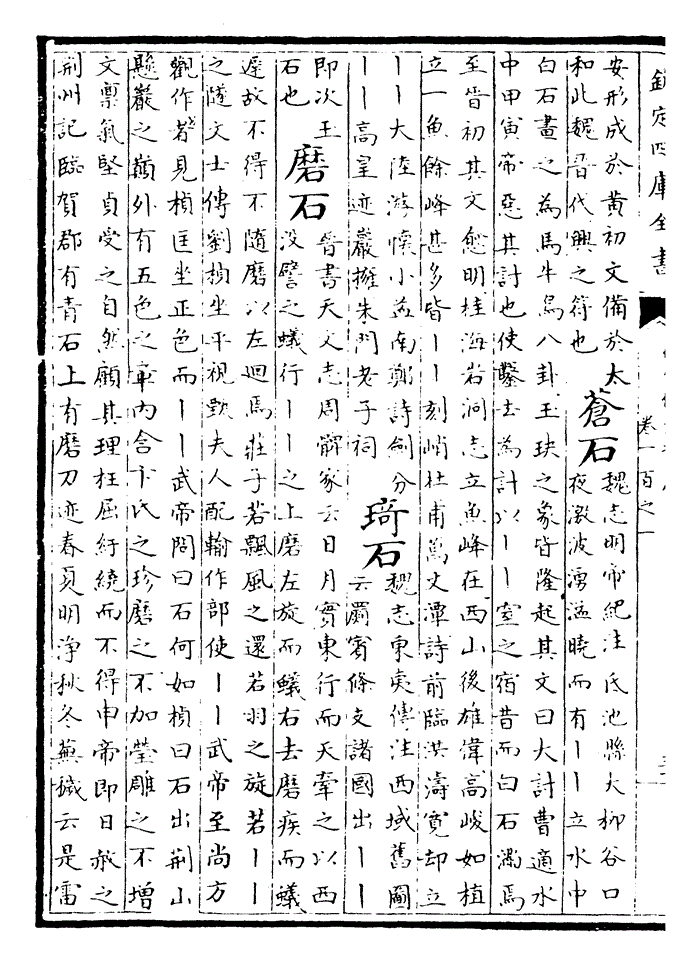 欽定四庫全書
卷一百之一
安形成於黄初文備於太
和此魏晉代興之符也
蒼石
魏志明帝紀注氐池縣大柳谷口
夜激波湧溢曉而有||立水中
白石畫之為馬牛鳥八卦玉玦之象皆隆起其文曰大討曹適水
中甲寅帝惡其討也使鑿去為計以||窒之宿昔而白石滿焉
至晉初其文愈明桂海岩洞志立魚峰在西山後雄偉高峻如植
立一魚餘峰甚多皆||刻峭杜甫萬丈潭詩前臨洪濤寛却立
||大陸游懷小益南鄭詩劍分
||高皇迹巖擁朱門老子祠
琦石
魏志東夷傳注西域舊圖
云罽賓條支諸國出||
即次玉
石也
磨石
晉書天文志周髀家云日月實東行而天牽之以西
没譬之蟻行||之上磨左旋而蟻右去磨疾而蟻
遲故不得不隨磨以左迴焉莊子若飄風之還若羽之旋若||
之隧文士傳劉楨坐平視甄夫人配輸作部使||武帝至尚方
觀作者見楨匡坐正色而||武帝問曰石何如楨曰石出荆山
懸巖之巔外有五色之章内含卞氏之珍磨之不加瑩雕之不增
文禀氣堅貞受之自然顧其理枉屈紆繞而不得申帝即日赦之
荆州記臨賀郡有青石上有磨刀迹春夏明淨秋冬蕪穢云是雷